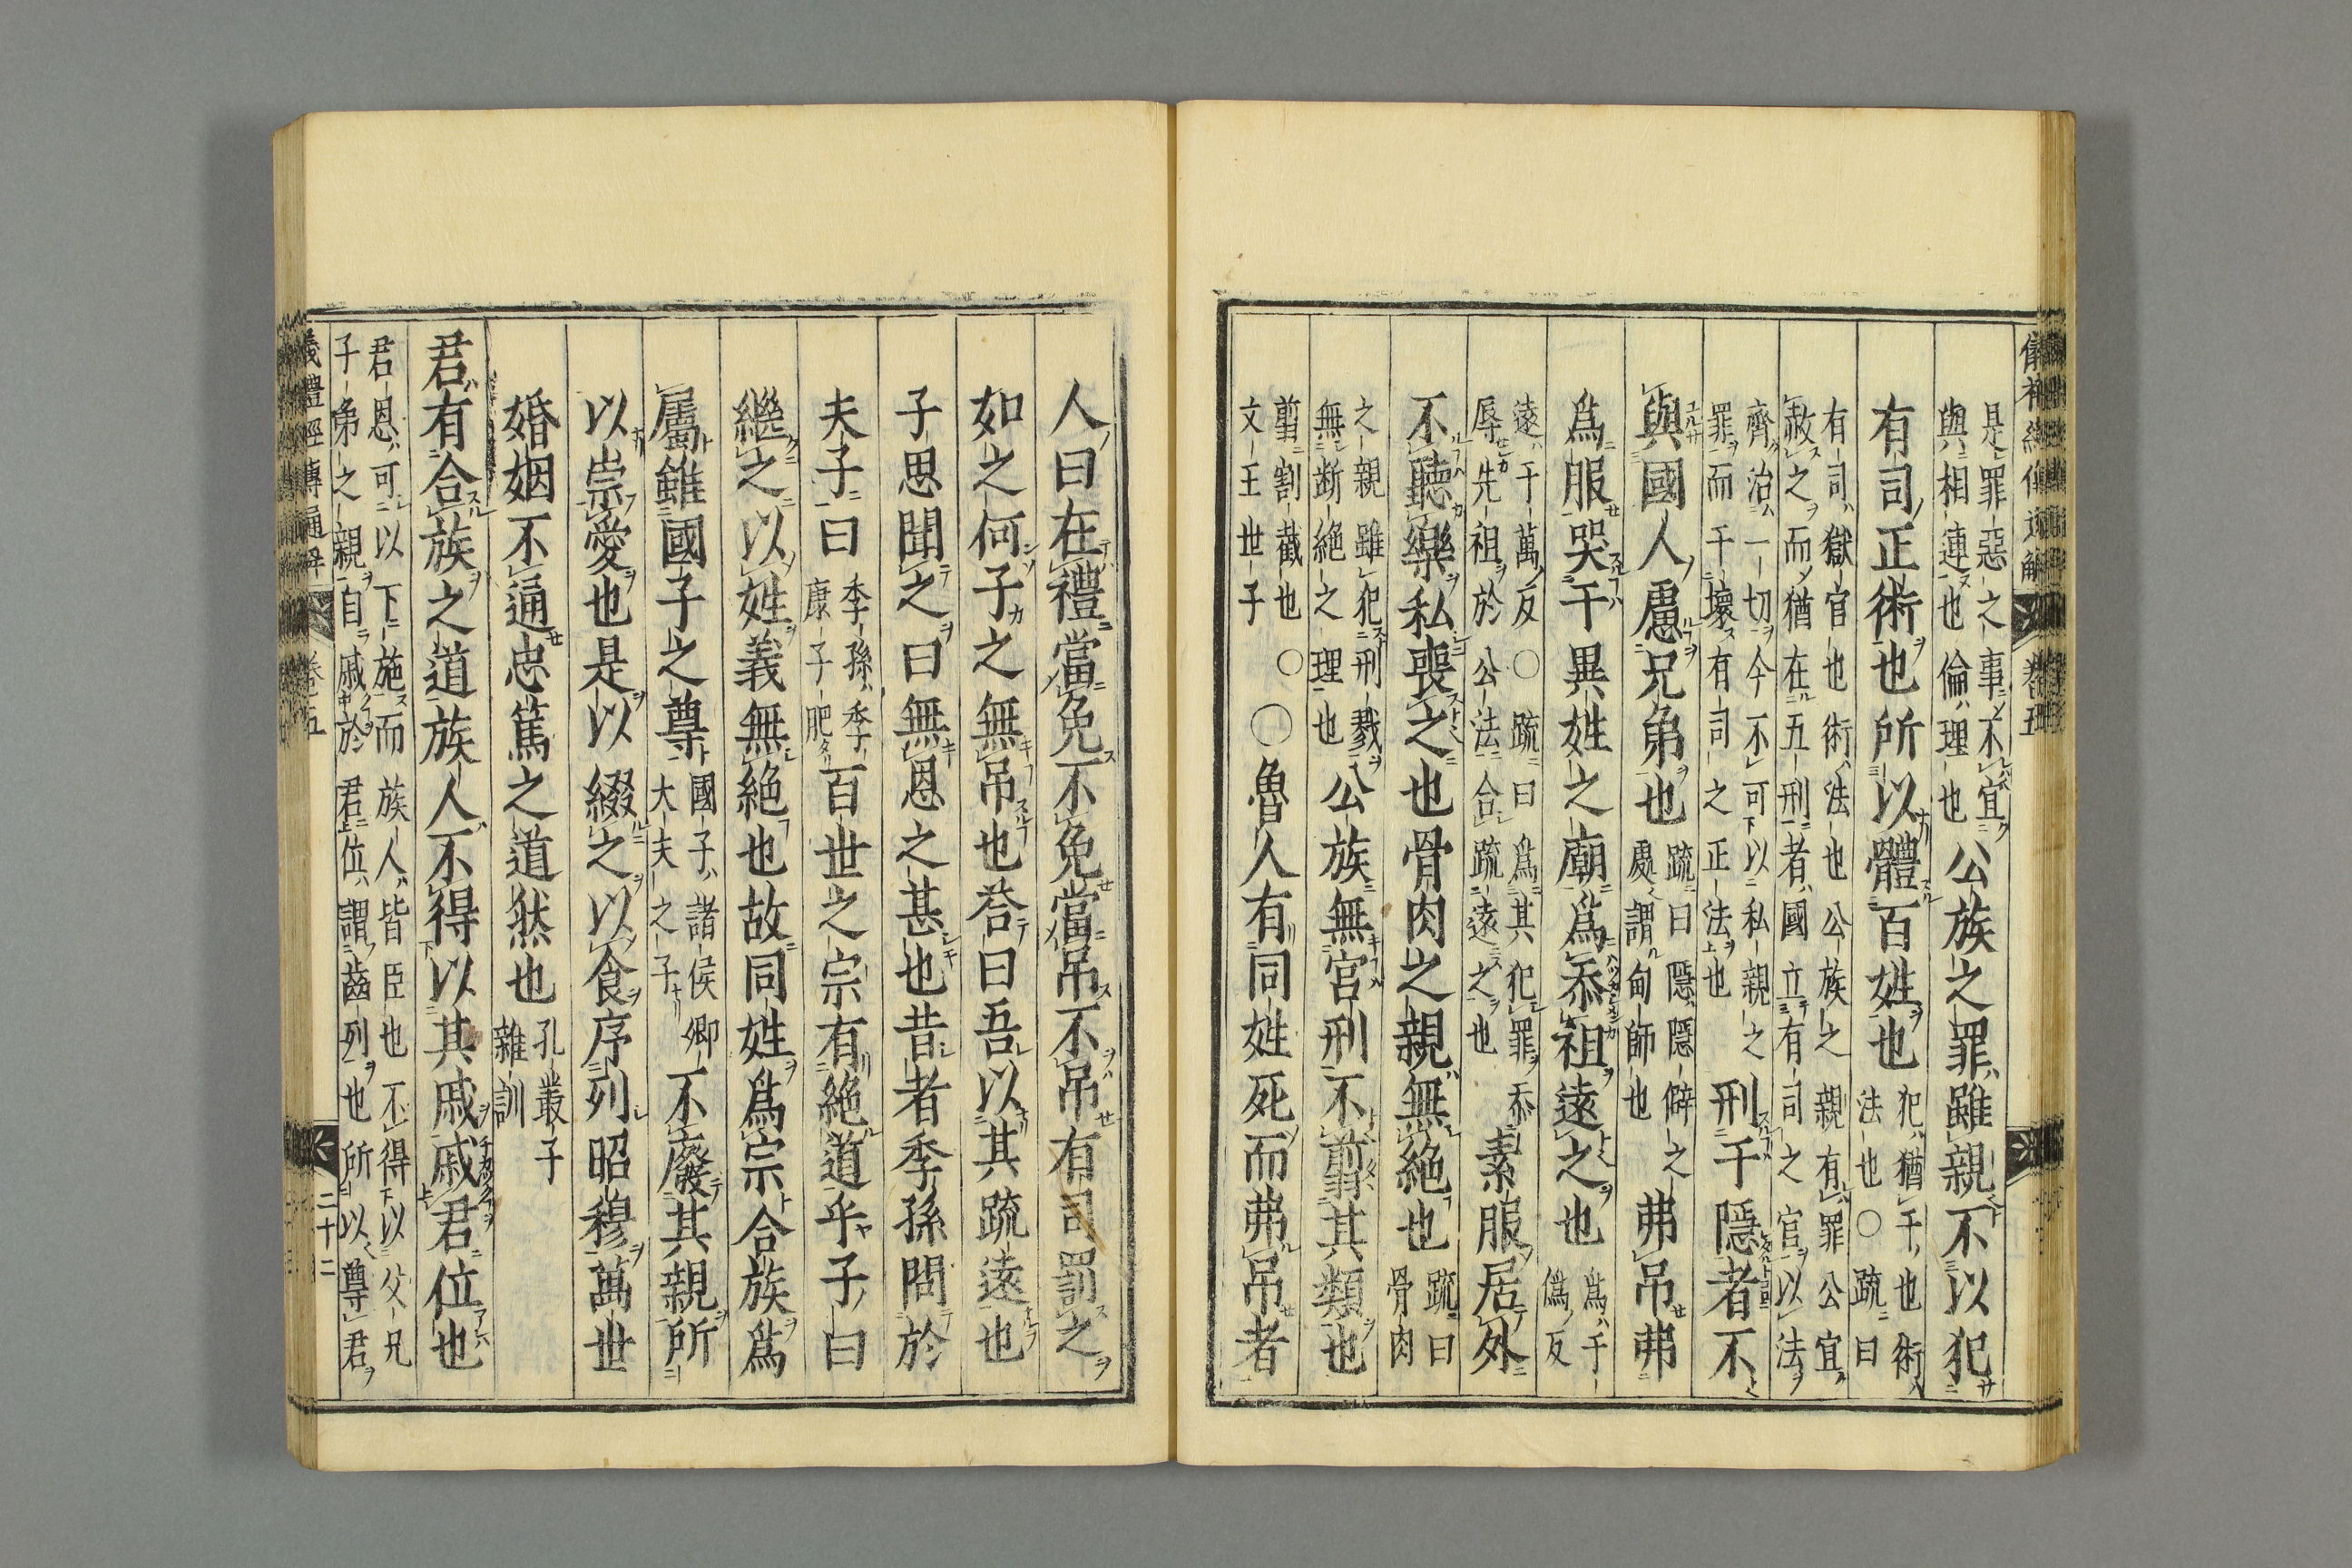 儀禮經傳通解 卷五
是罪惡之事不宜
與相連也倫理也
公族之罪雖親不以犯
有司正術也所以體百姓也
犯猶干也術
法也○疏曰
有司獄官也術法也公族之親有罪公宜
赦之而猶在五刑者國立有司之官以法
齊治一切今不可以私親之
罪而干壞有司之正法也
刑于隱者不
與國人慮兄弟也
疏曰隱隱僻之
處謂甸師也
弗吊弗
爲服哭于異姓之廟爲忝祖遠之也
爲于
僞反
遠于萬反○疏曰爲其犯罪忝
辱先祖於公法合疏遠之也
素服居外
不聽樂私喪之也骨肉之親無絶也
疏曰
骨肉
之親雖犯刑戮
無断絶之理也
公族無宮刑不翦其類也
翦割截也○
文王世子
○魯人有同姓死而弗吊者
人曰在禮當免不免當吊不吊有司罰之
如之何子之無吊也荅曰吾以其疏遠也
子思聞之曰無恩之甚也昔者季孫問於
夫子曰
季孫季
康子肥
百世之宗有絶道乎子曰
繼之以姓義無絶也故同姓爲宗合族爲
屬雖國子之尊
國子諸侯卿
大夫之子
不廢其親所
以崇愛也是以綴之以食序列昭穆萬世
婚姻不通忠篤之道然也
孔叢子
雜訓
君有合族之道族人不得以其戚戚君位也
君恩可以下施而族人皆臣也不得以父兄
子弟之親自戚於君位謂齒列也所以尊君
儀禮經傳通解 卷五 二十二